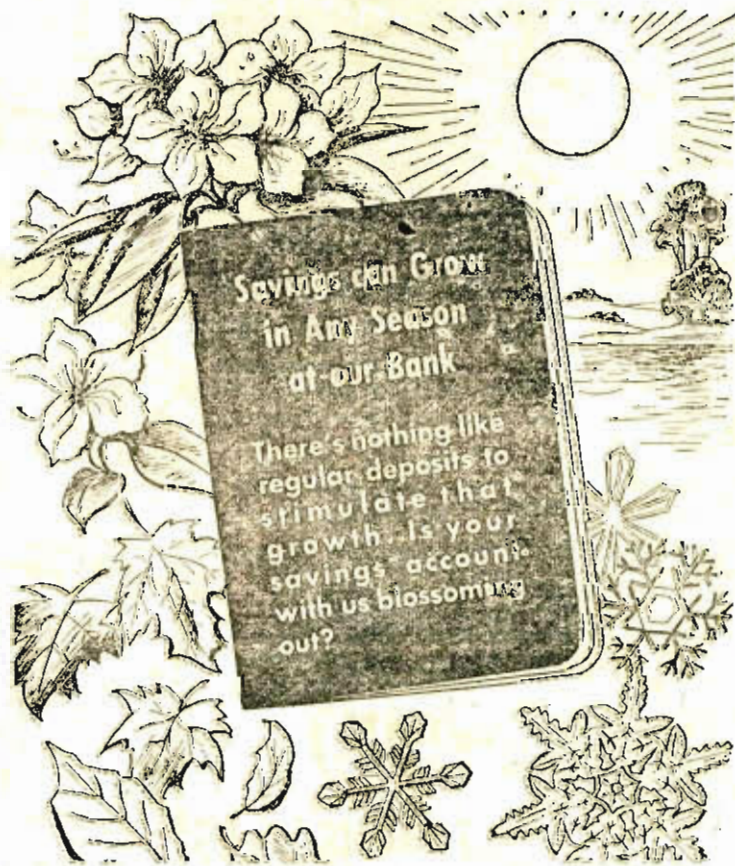 Savings can Grow
in Any Season
at our Bank
There's nothing like
regular deposits to
stimulate that
growth. Is your
savings account
with us blossoming
out?